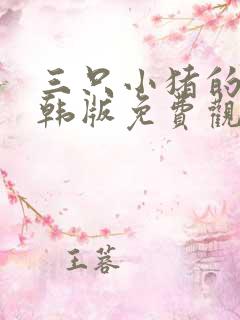 三只小猪的
韩版免費觀
王蓉